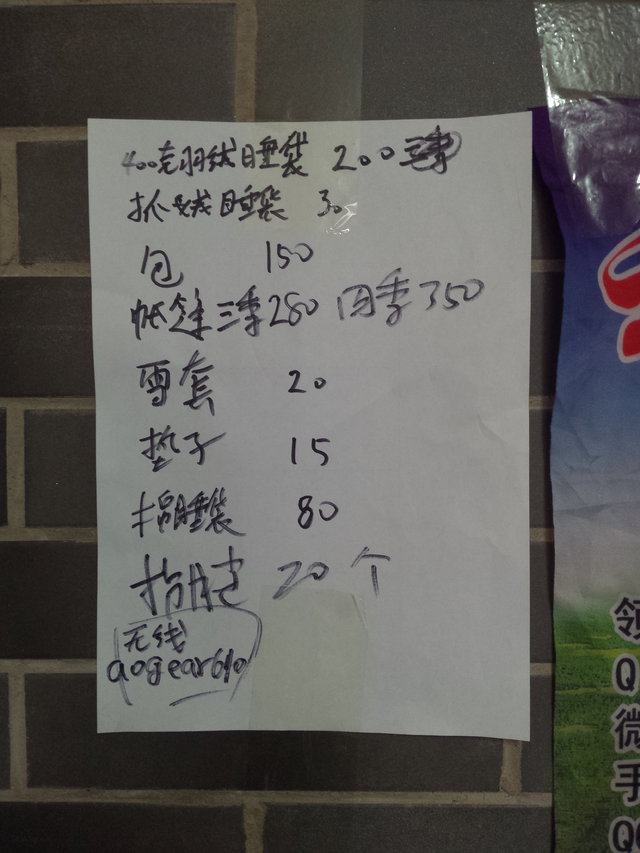 400克羽绒睡袋 200
抓绒睡袋 30
包 150
帐篷三季280 四季350
雪套 20
垫子 15
棉睡袋 80
20个
无线
aogear610
领
Q
微
手
QQ